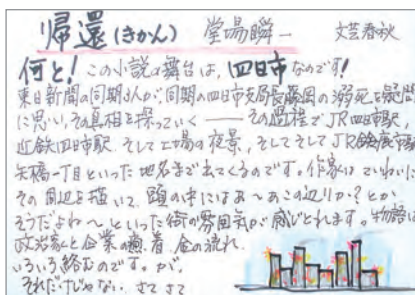 帰還(きかん) 堂場瞬一 文芸春秋
何と!この小説の舞台は、四日市なのです!
東日新聞の同期3人が、同期の四日市支局長藤岡の溺死を疑問
に思い、その真相を探っていく――その過程でJR四日市駅、
近鉄四日市駅、そして工場の夜景、そしてそしてJR鈴鹿市駅
矢橋一丁目といった地名まで出てくるのです。作家はていねいに
その周辺を描いて、頭の中にはあ〜あこの辺りか?とか
そうだよね〜といった街の雰囲気が感じとれます。物語は
政治家と企業の癒着、金の流れ、
いろいろ絡むのです。が、
それだけじゃない さて さて